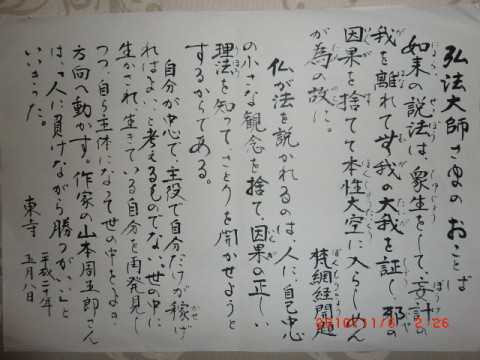 弘法大師さまの おことば
如来の説法は、衆生をして、妄計の
我を離れて無我の大我を証し、邪の
因果を捨てて本性大空に入らしめん
が為の故に。
梵網経開題
仏が法を説かれるのは、人に、自己中心
の小さな観念を捨て、因果の正しい
理法を知って、さとりを開かせようと
するからである。
自分が中心で、主役で自分だけが稼げ
ればよい、と考えるものでない、世の中に
生かされ、生きている自分を再発見し
つつ、自ら主体になってその中をよき
方向へ動かす。作家の山本周五郎さん
は、「人に負けながら勝つがいい」と
いいきった。
東寺
平成二十年
五月八日
2010/11/6 2:26